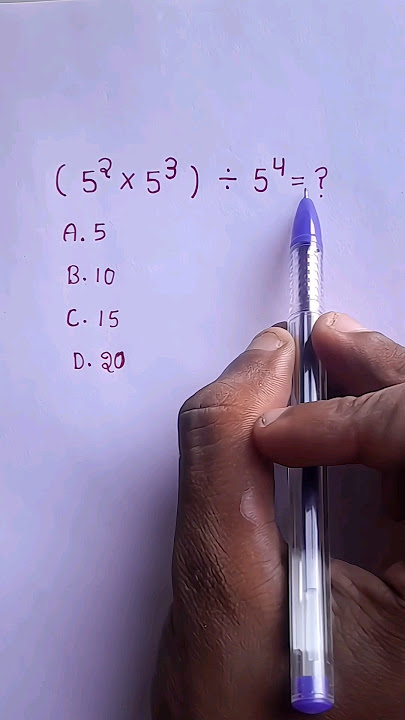 ( 5² × 5³ ) ÷ 5⁴ = ?
A. 5
B. 10
C. 15
D. 20